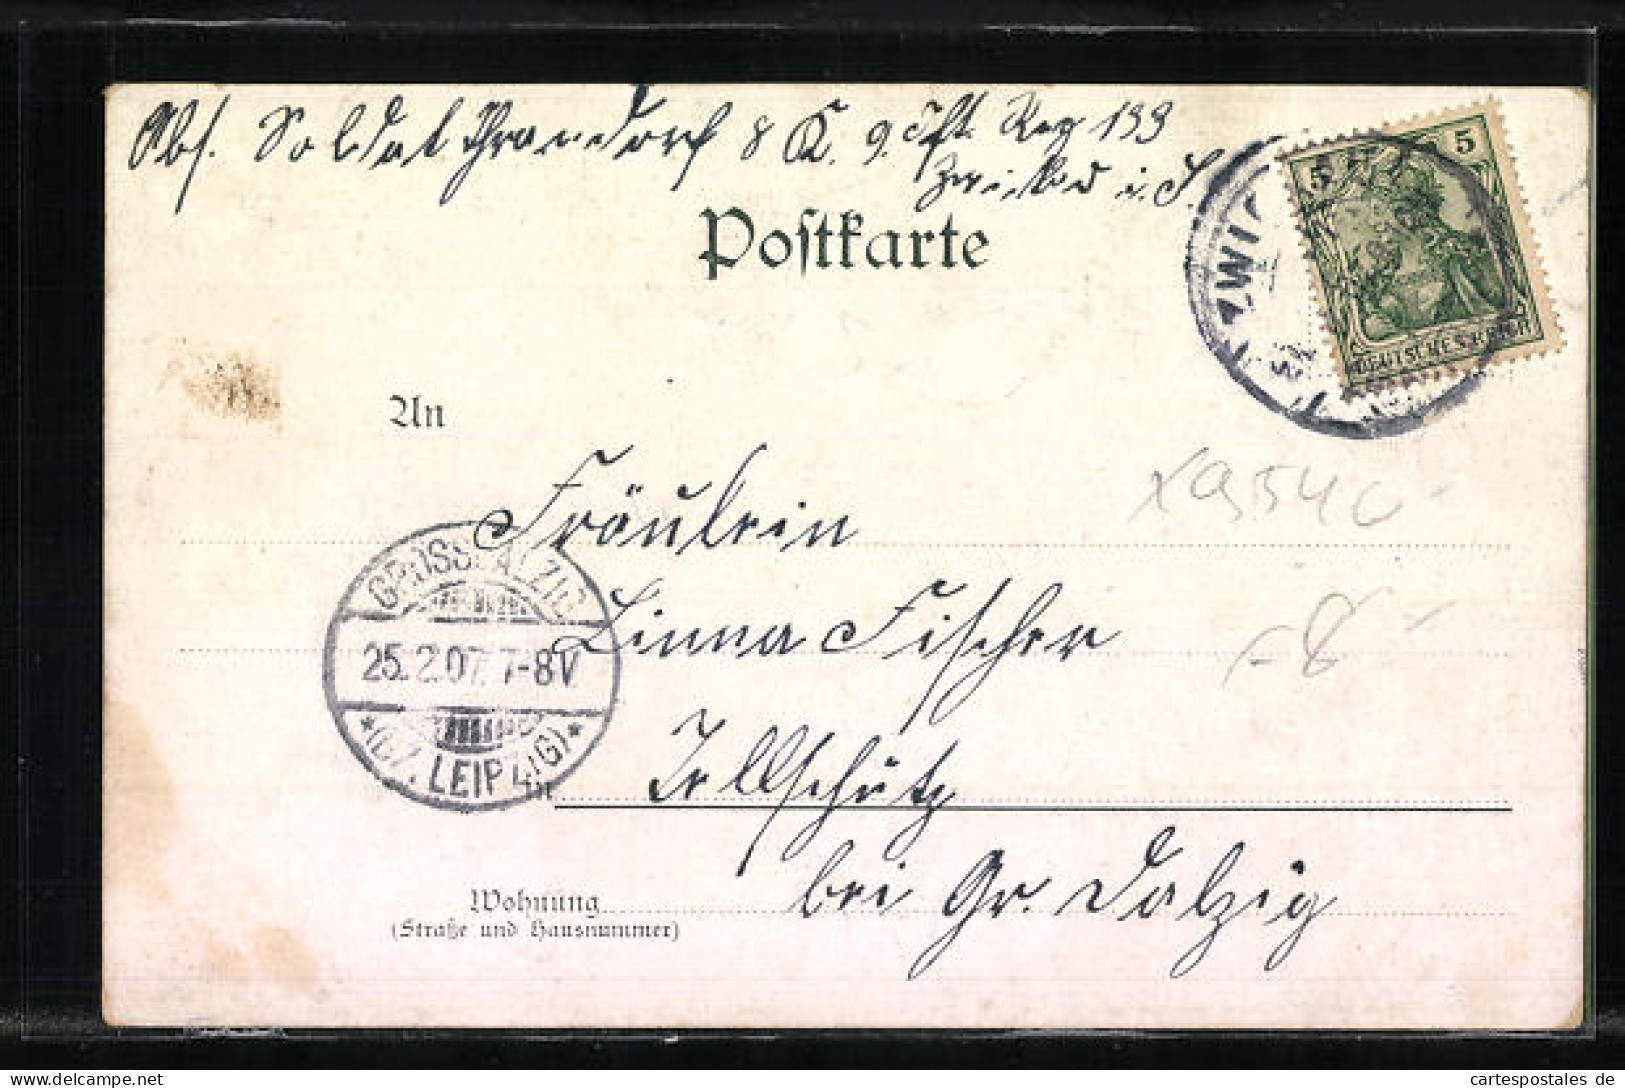 Abs. Soldat Thrandorf 8 K. 9. Inft. Reg 133
Zwickau i. S.
Postkarte
5 5
DEUTSCHES REICH
ZWIC
An
Fräulein
Linna Fischer
GROSSDALZIG
25.2.07. 7-8V.
*(BZ. LEIPZIG)*
in
Tellschütz
bei Gr. Dalzig
Wohnung
(Straße und Hausnummer)
-8-
cartespostales de